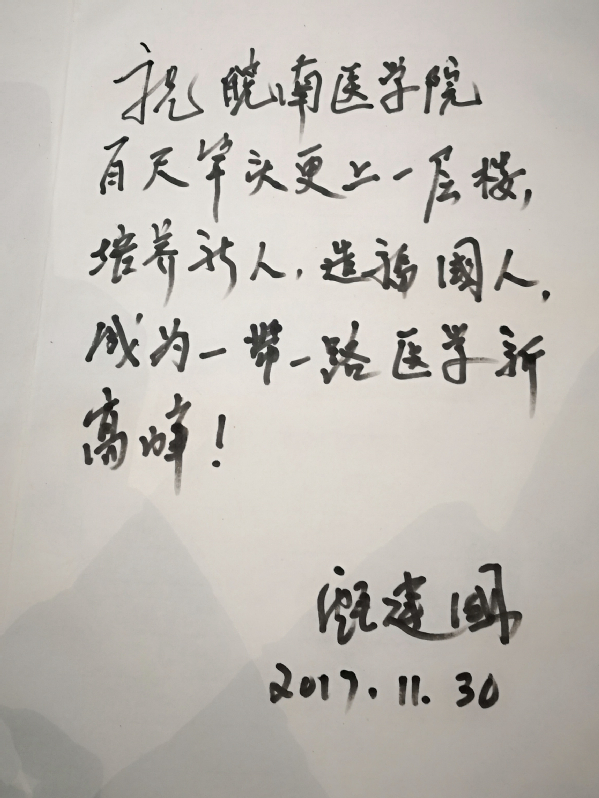 祝皖南医学院
百尺竿头更上一层楼,
培养新人,造福國人,
成为一带一路医学新
高峰!
建國
2017.11.30